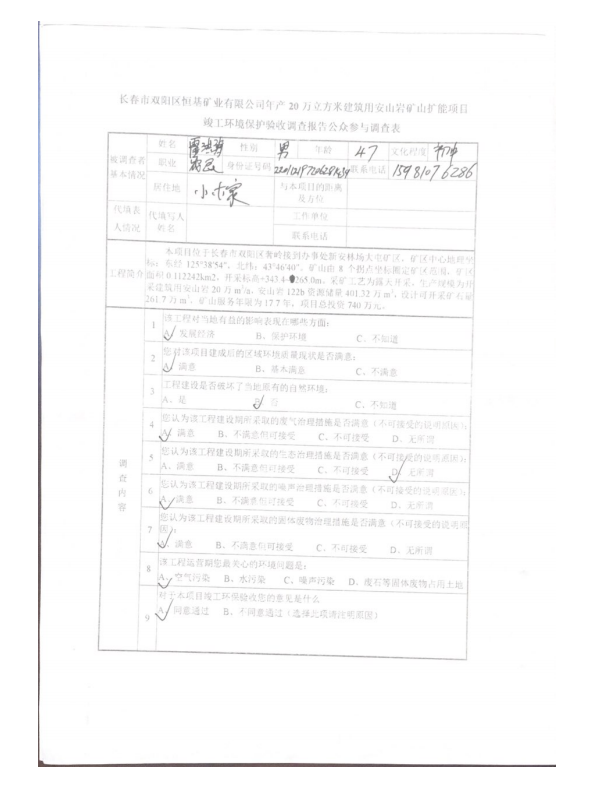 长春市双阳区恒基矿业有限公司年产 20 万立方米建筑用安山岩矿山扩能项目
竣工环境保护验收调查报告公众参与调查表
被调查者基本情况 姓名 性别 男 年龄 47 文化程度 初中
职业 农民 身份证号码 联系电话 15981076286
居住地 与本项目的距离及方位
代填表人情况 代填写人姓名 工作单位
联系电话
工程简介 本项目位于长春市双阳区奢岭接到办事处新安林场大屯矿区，矿区中心地理坐
标：东经 125°38′54″，北纬：43°46′40″，矿山由 8 个拐点坐标圈定矿区范围，矿区
面积 0.112242km2，开采标高+343.4-265.0m，采矿工艺为露天开采，生产规模为开
采建筑用安山岩 20 万 m³/a，安山岩 122b 资源储量 401.32 万 m³，设计可开采矿石量
261.7 万 m³，矿山服务年限为 17.7 年，项目总投资 740 万元。
调查内容
1 该工程对当地有益的影响表现在哪些方面：
A、发展经济 B、保护环境 C、不知道
2 您对该项目建成后的区域环境质量现状是否满意：
A、满意 B、基本满意 C、不满意
3 工程建设是否破坏了当地原有的自然环境：
A、是 B、否 C、不知道
4 您认为该工程建设期所采取的废气治理措施是否满意（不可接受的说明原因）：
A、满意 B、不满意但可接受 C、不可接受 D、无所谓
5 您认为该工程建设期所采取的生态治理措施是否满意（不可接受的说明原因）：
A、满意 B、不满意但可接受 C、不可接受 D、无所谓
6 您认为该工程建设期所采取的噪声治理措施是否满意（不可接受的说明原因）：
A、满意 B、不满意但可接受 C、不可接受 D、无所谓
7 您认为该工程建设期所采取的固体废物治理措施是否满意（不可接受的说明原
因）：
A、满意 B、不满意但可接受 C、不可接受 D、无所谓
8 该工程运营期您最关心的环境问题是：
A、空气污染 B、水污染 C、噪声污染 D、废石等固体废物占用土地
9 对于本项目竣工环保验收您的意见是什么
A、同意通过 B、不同意通过（选择此项请注明原因）